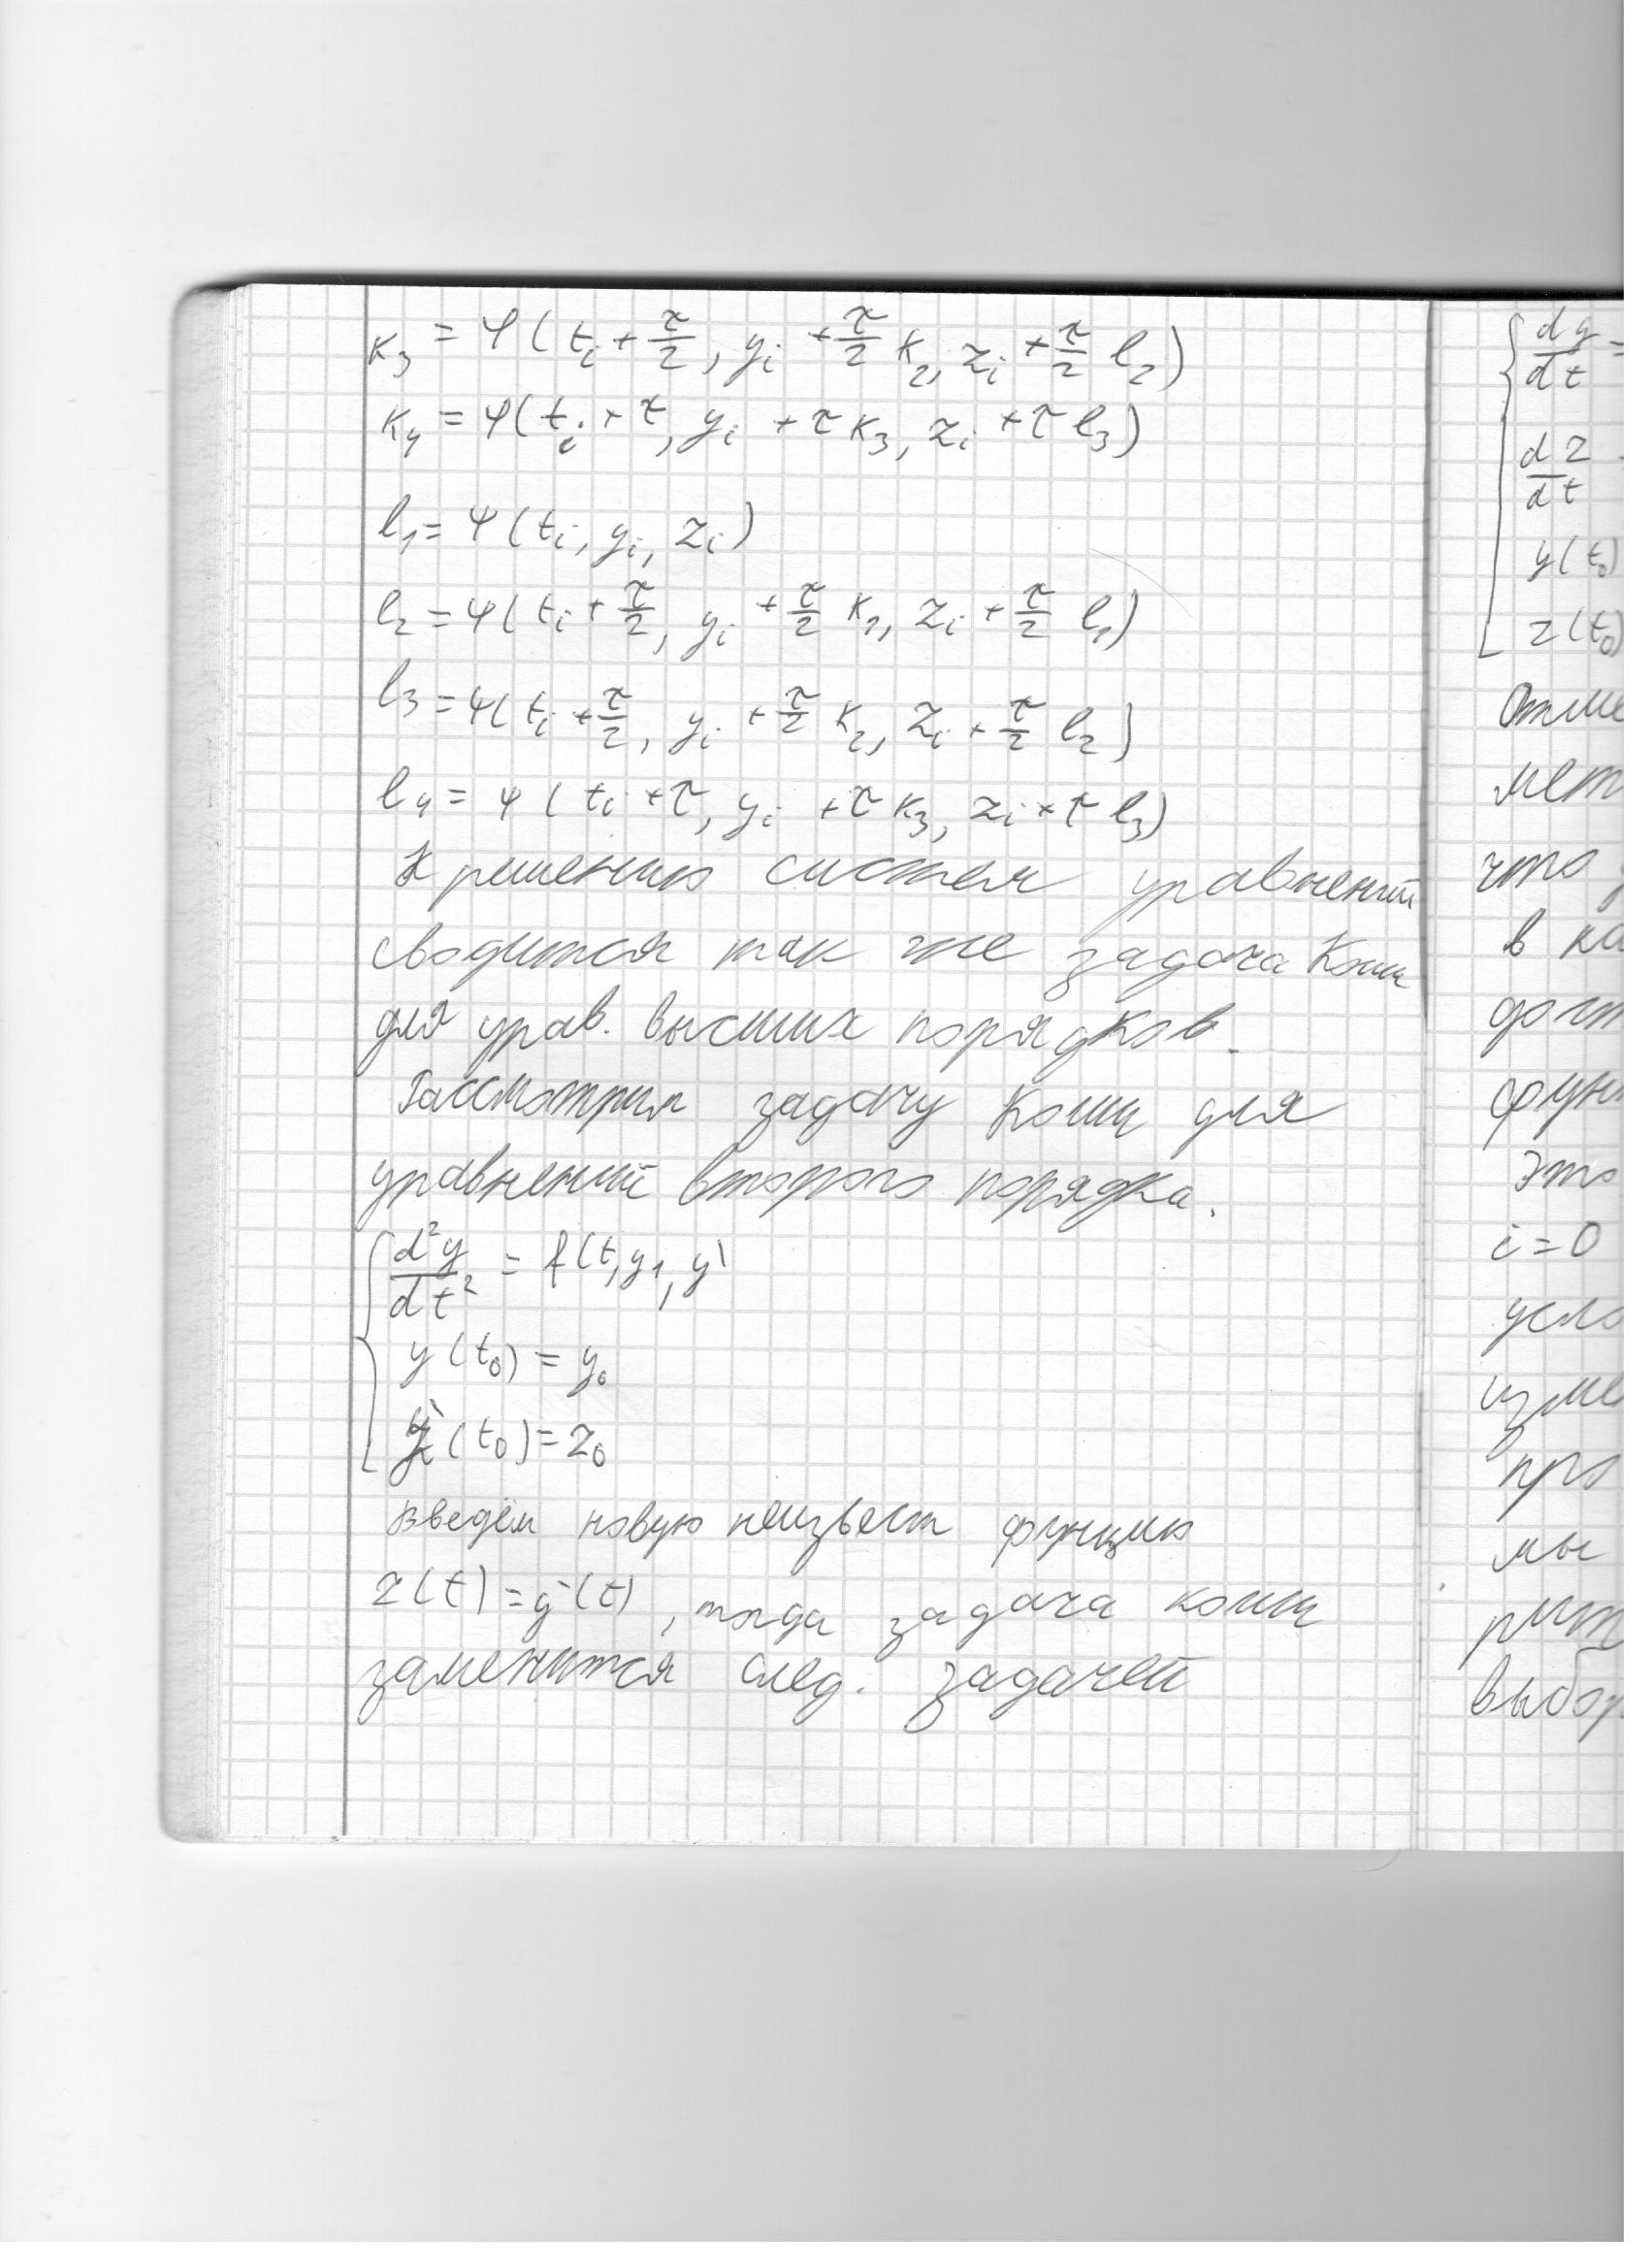 K₃ = φ(tᵢ + τ/2, yᵢ + τ/2 K₂, zᵢ + τ/2 l₂)
K₄ = φ(tᵢ + τ, yᵢ + τ K₃, zᵢ + τ l₃)
l₁ = ψ(tᵢ, yᵢ, zᵢ)
l₂ = ψ(tᵢ + τ/2, yᵢ + τ/2 K₁, zᵢ + τ/2 l₁)
l₃ = ψ(tᵢ + τ/2, yᵢ + τ/2 K₂, zᵢ + τ/2 l₂)
l₄ = ψ(tᵢ + τ, yᵢ + τ K₃, zᵢ + τ l₃)
К решению систем уравнений
сводится так же задача Коши
для урав. высших порядков.
Рассмотрим задачу Коши для
уравнений второго порядка.
d²y/dt² = f(t, y₁, y'
y(t₀) = y₀
y'(t₀) = z₀
Введём новую неизвест функцию
z(t) = y'(t), тогда задача коши
заменится след. задачей
dy/dt =
dz/dt
y(t₀)
z(t₀)
Отме
мет
что
в ка
дост
функ
Это
i = 0
усло
изме
про
мы
рит
выбор